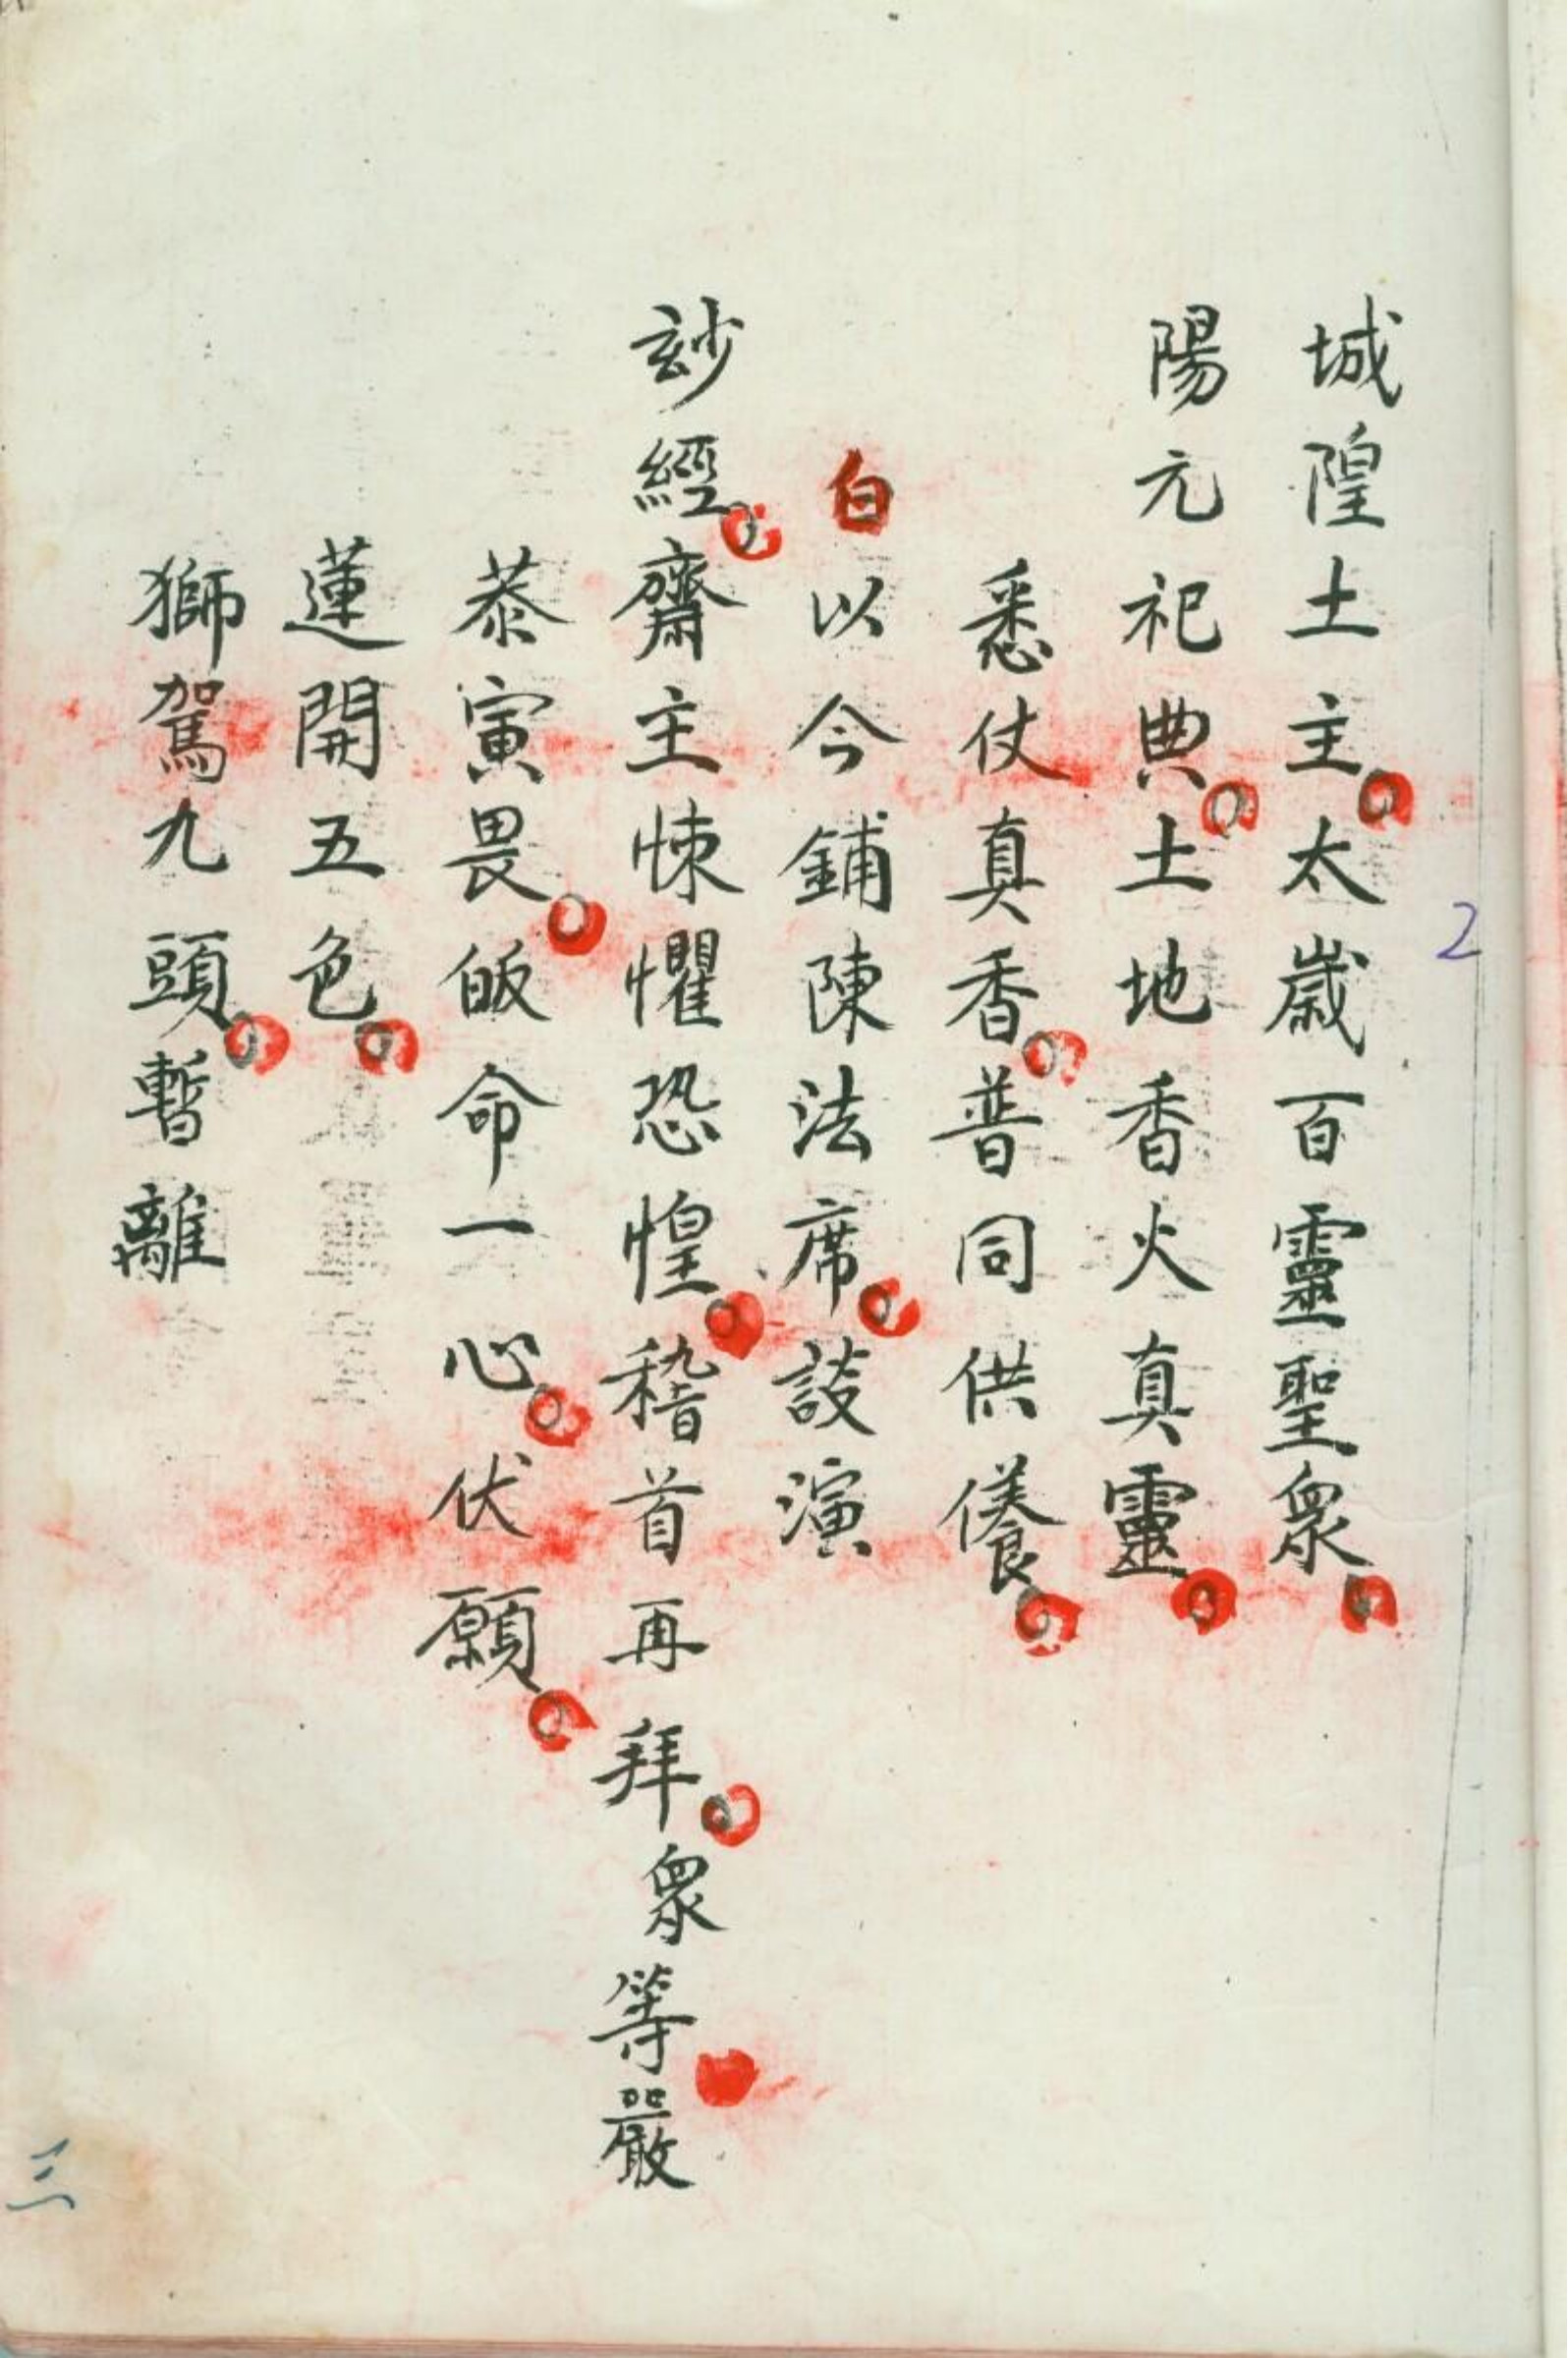 城隍土主。太歲百靈聖衆。
陽元祀典。土地香火真靈。
悉仗真香。普同供養。
白以今鋪陳法席。談演
玅經。齋主悚懼恐惶。稽首再拜。衆等嚴
恭寅畏。皈命一心。伏願。
蓮開五色。
獅駕九頭。暫離
2
三